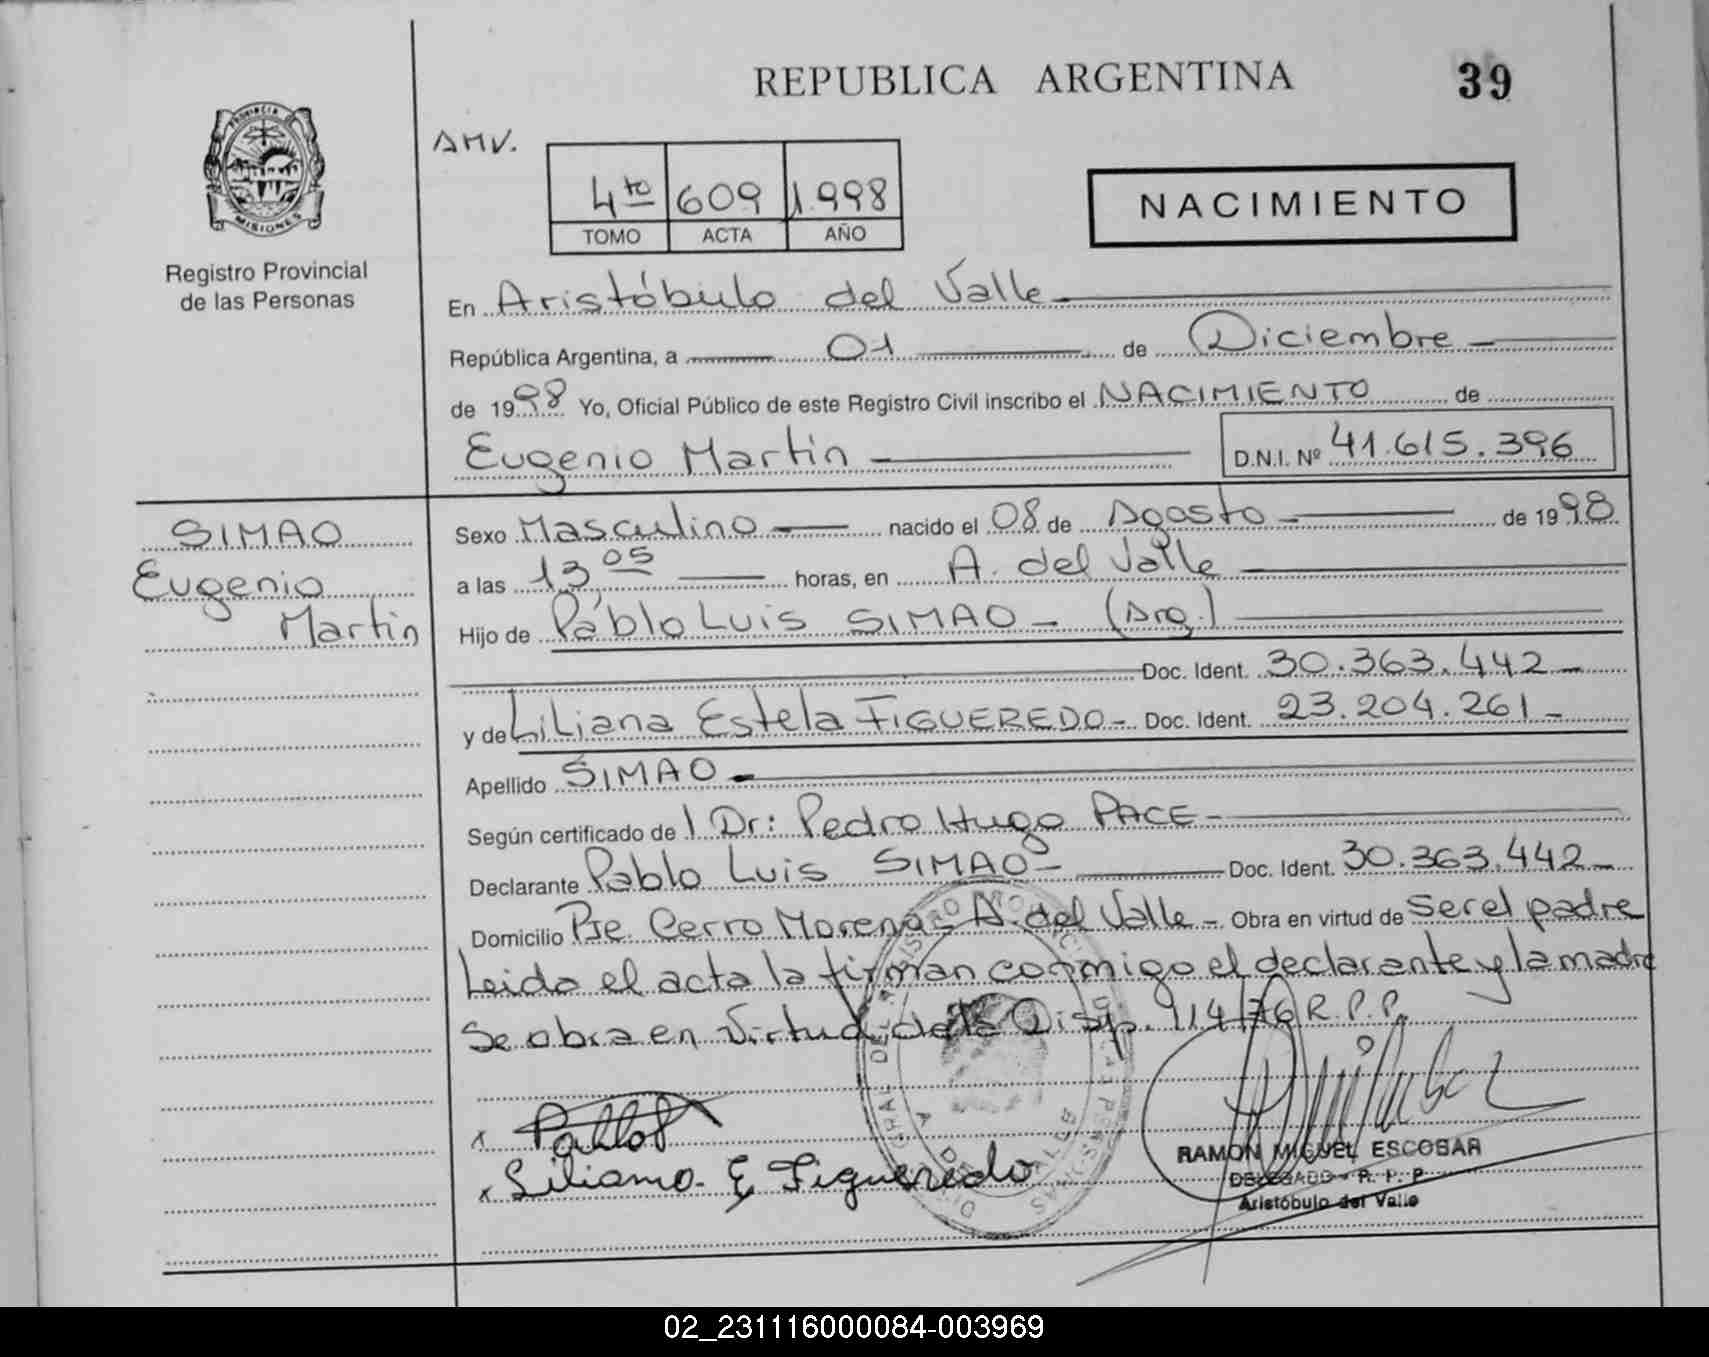 REPUBLICA ARGENTINA 39
PROVINCIA DE
MISIONES
Registro Provincial
de las Personas
AMV.
4to 609 1.998
TOMO ACTA AÑO
NACIMIENTO
En Aristóbulo del Valle
República Argentina, a 01 de Diciembre
de 1998 Yo, Oficial Público de este Registro Civil inscribo el NACIMIENTO de
Eugenio Martin D.N.I. Nº 41.615.396
SIMAO
Eugenio
Martin
Sexo Masculino nacido el 08 de Agosto de 1998
a las 13,05 horas, en A. del Valle
Hijo de Pablo Luis SIMAO - (Arg.)
Doc. Ident. 30.363.442
y de Liliana Estela FIGUEREDO - Doc. Ident. 23.204.261 -
Apellido SIMAO
Según certificado de l Dr: Pedro Hugo PACE -
Declarante Pablo Luis SIMAO - Doc. Ident. 30.363.442
Domicilio Pje. Cerro Morena - A. del Valle - Obra en virtud de Ser el padre
Leida el acta la firman conmigo el declarante y la madre
Se obra en Virtud de la Disp. 914/76 R.P.P.
x Pablo
x Liliana E Figueredo
RAMON MIGUEL ESCOBAR
DELEGADO - R. P. P.
Aristóbulo del Valle
02_231116000084-003969